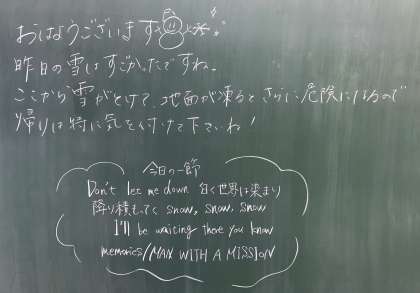 おはようございます
昨日の雪はすごかったですね。
ここから雪がとけて、地面が凍るとさらに危険になるので
帰りは特に気を付けて下さいね!
今日の一節
Don't let me down 白く世界は染まり
降り積もってく snow, snow, snow
I'll be waiting there you know
memories/MAN WITH A MISSION